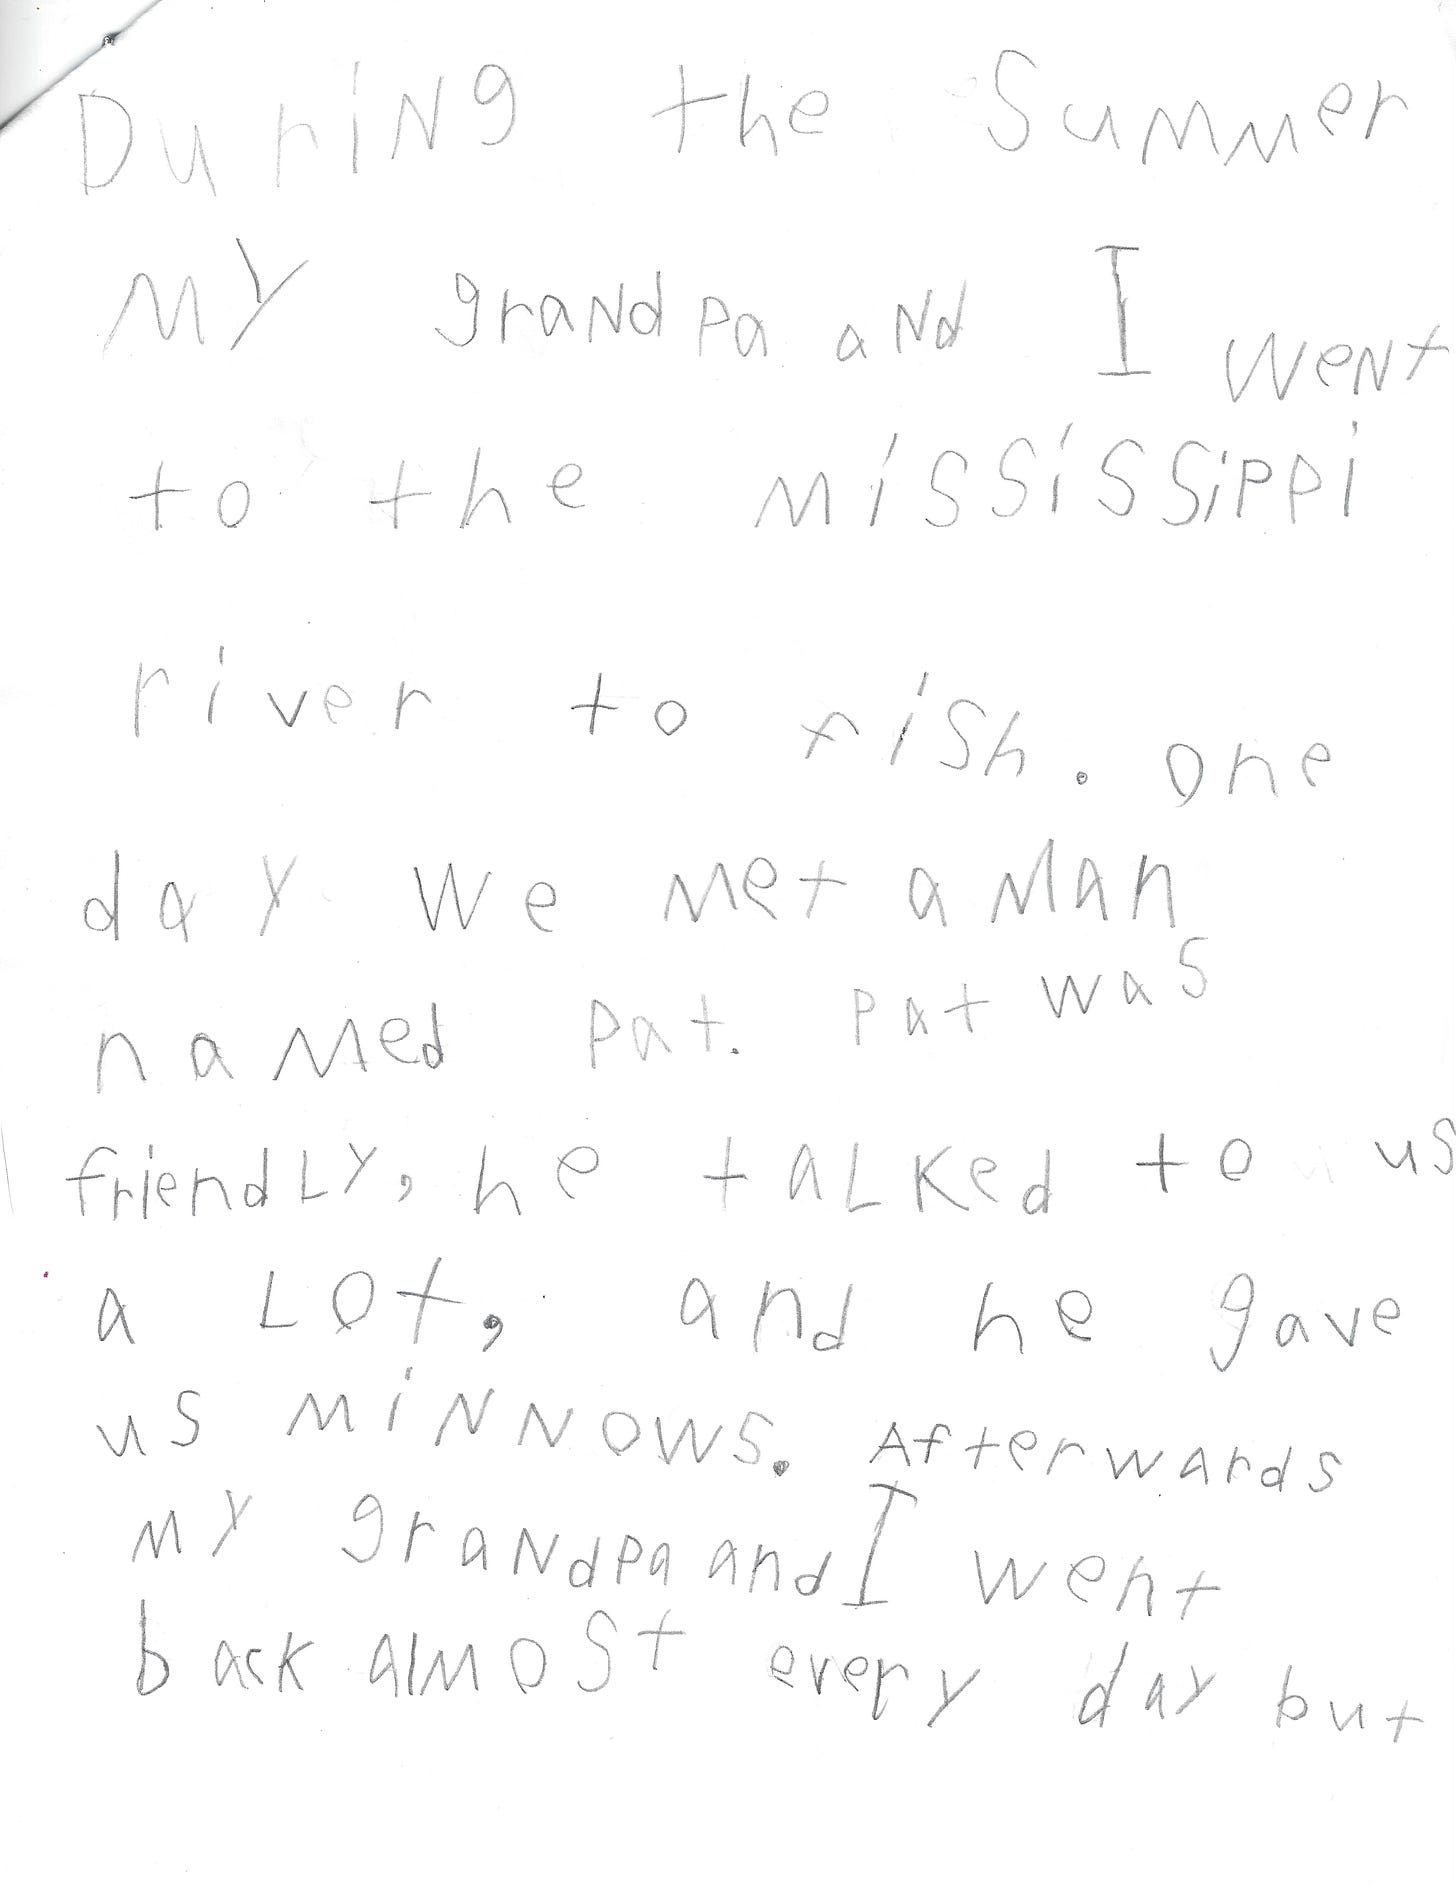 During the Summer
My grandpa and I went
to the mississippi
river to fish. One
day we met a Man
named Pat. Pat was
friendly, he talked to us
a Lot, and he gave
us minnows. Afterwards
my grandpa and I went
back almost every day but